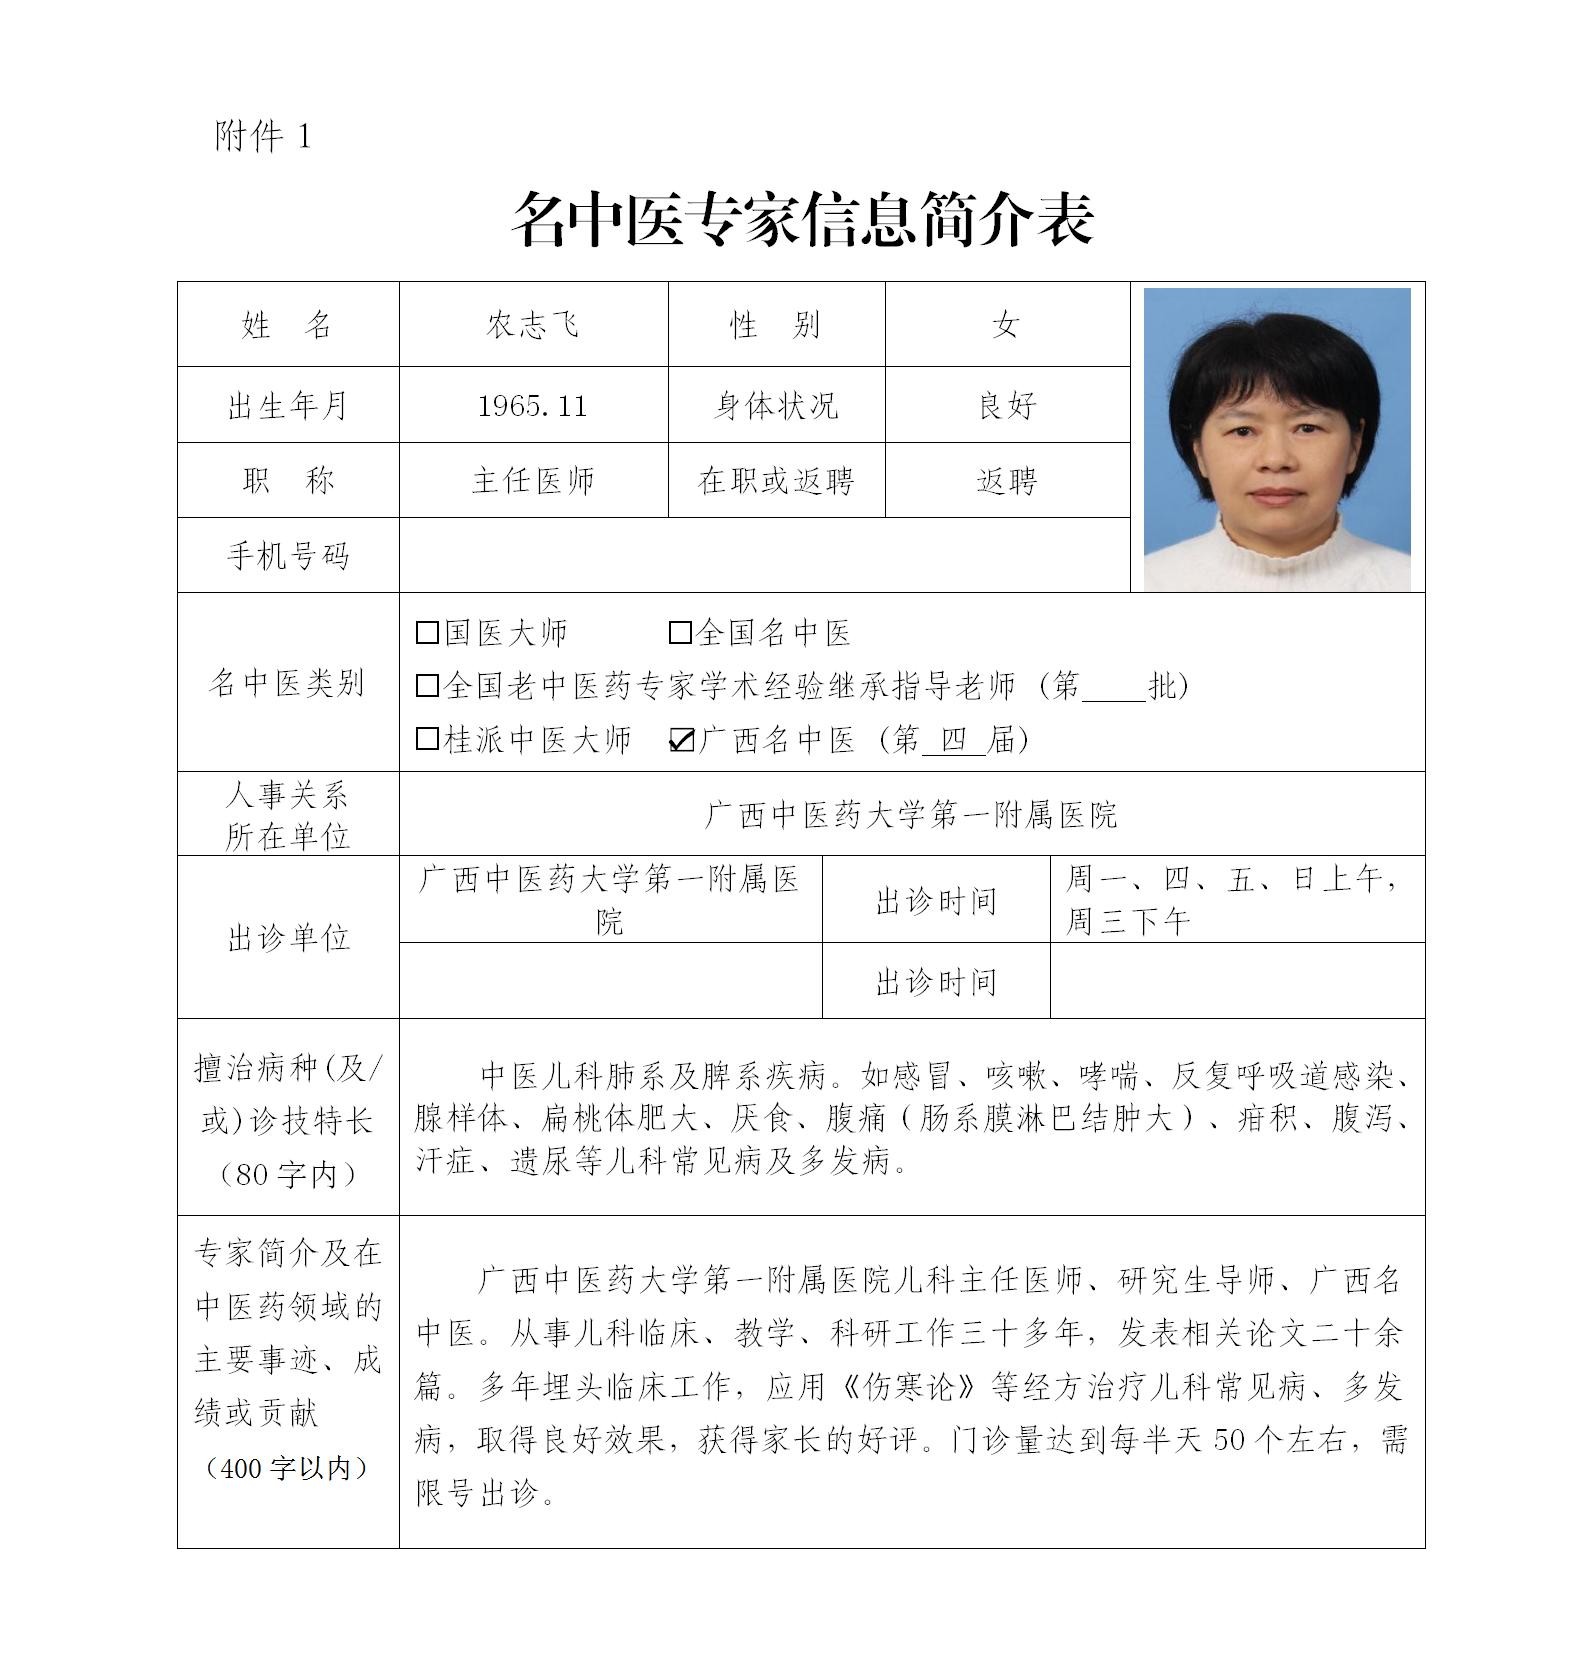 附件 1
名中医专家信息简介表
姓 名 农志飞 性 别 女
出生年月 1965.11 身体状况 良好
职 称 主任医师 在职或返聘 返聘
手机号码
名中医类别
□国医大师 □全国名中医
□全国老中医药专家学术经验继承指导老师 (第____批)
□桂派中医大师 ☑广西名中医 (第 四 届)
人事关系
所在单位
广西中医药大学第一附属医院
出诊单位
广西中医药大学第一附属医
院
出诊时间
周一、四、五、日上午，
周三下午
出诊时间
擅治病种(及/
或)诊技特长
（80 字内）
中医儿科肺系及脾系疾病。如感冒、咳嗽、哮喘、反复呼吸道感染、
腺样体、扁桃体肥大、厌食、腹痛（肠系膜淋巴结肿大）、疳积、腹泻、
汗症、遗尿等儿科常见病及多发病。
专家简介及在
中医药领域的
主要事迹、成
绩或贡献
（400 字以内）
广西中医药大学第一附属医院儿科主任医师、研究生导师、广西名
中医。从事儿科临床、教学、科研工作三十多年，发表相关论文二十余
篇。多年埋头临床工作，应用《伤寒论》等经方治疗儿科常见病、多发
病，取得良好效果，获得家长的好评。门诊量达到每半天 50 个左右，需
限号出诊。